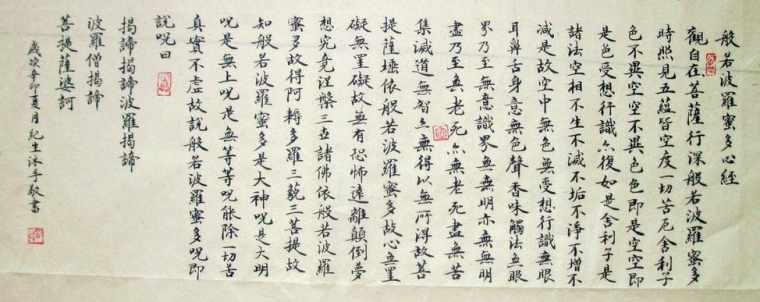 般若波羅蜜多心經
觀自在菩薩行深般若波羅蜜多
時照見五蘊皆空度一切苦厄舍利子
色不異空空不異色色即是空空即
是色受想行識亦復如是舍利子是
諸法空相不生不滅不垢不淨不增不
減是故空中無色無受想行識無眼
耳鼻舌身意無色聲香味觸法無眼
界乃至無意識界無無明亦無無明
盡乃至無老死亦無老死盡無苦
集滅道無智亦無得以無所得故菩
提薩埵依般若波羅蜜多故心無罣
礙無罣礙故無有恐怖遠離顛倒夢
想究竟涅槃三世諸佛依般若波羅
蜜多故得阿耨多羅三藐三菩提故
知般若波羅蜜多是大神呪是大明
呪是無上呪是無等等呪能除一切苦
真實不虛故說般若波羅蜜多呪即
說呪曰
揭諦揭諦波羅揭諦
波羅僧揭諦
菩提薩婆訶
歲次辛卯夏月紀生沐手敬書